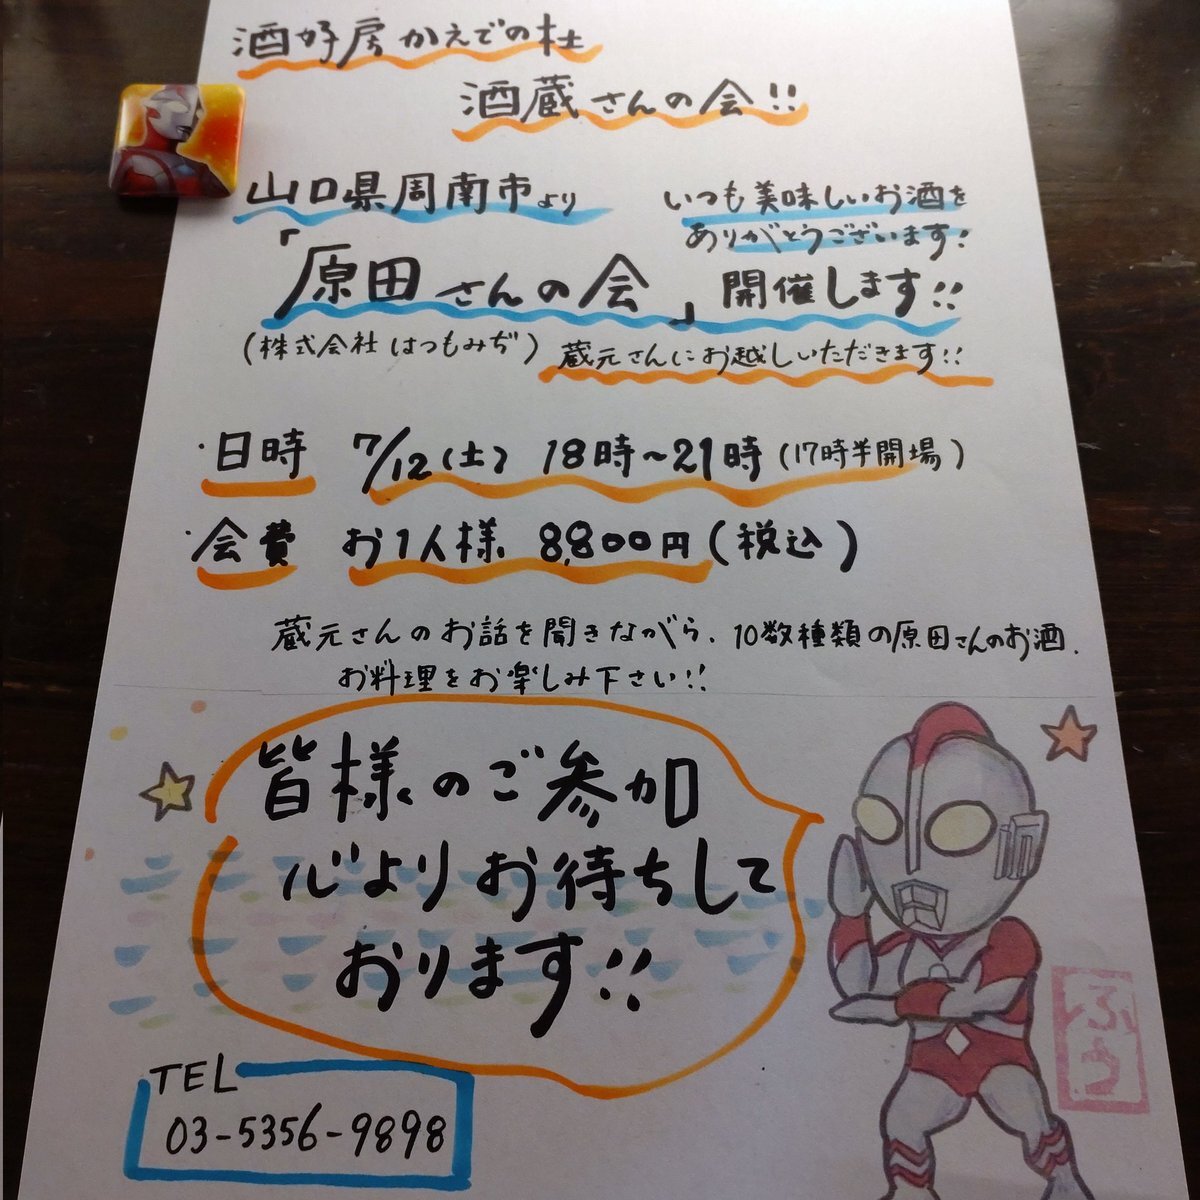 酒好房かえでの杜
酒蔵さんの会!!
山口県周南市より
いつも美味しいお酒を
ありがとうございます!
「原田さんの会」開催します!!
(株式会社はつもみぢ)蔵元さんにお越しいただきます!!
・日時 7/12(土) 18時～21時(17時半開場)
・会費 お1人様 8,800円(税込)
蔵元さんのお話を聞きながら、10数種類の原田さんのお酒、
お料理をお楽しみ下さい!!
皆様のご参加
心よりお待ちして
おります!!
TEL
03-5356-9898
ふう